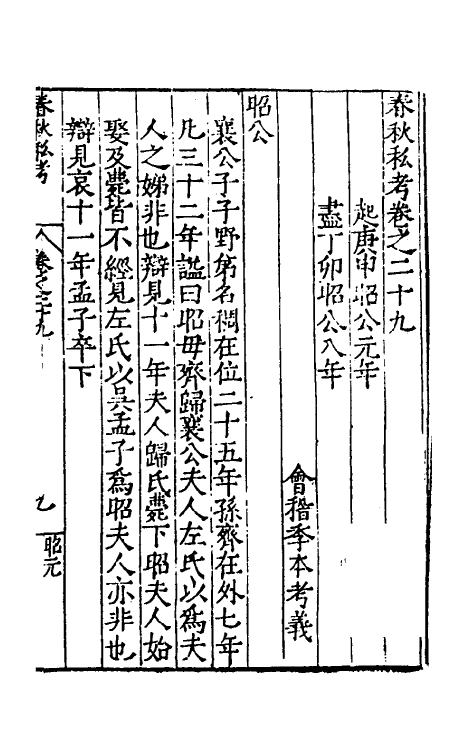 春秋私考卷之二十九
起庚申昭公元年
盡丁卯昭公八年
會稽季本考義
昭公
襄公子子野弟名稠在位二十五年孫齊在外七年
凡三十二年謚曰昭毋齊歸襄公夫人左氏以爲夫
人之娣非也辯見十一年夫人歸氏薨下昭夫人始
娶及薨皆不經見左氏以吳孟子爲昭夫人亦非也
辯見哀十一年孟子卒下
春秋私考
卷之二十九
九
昭元